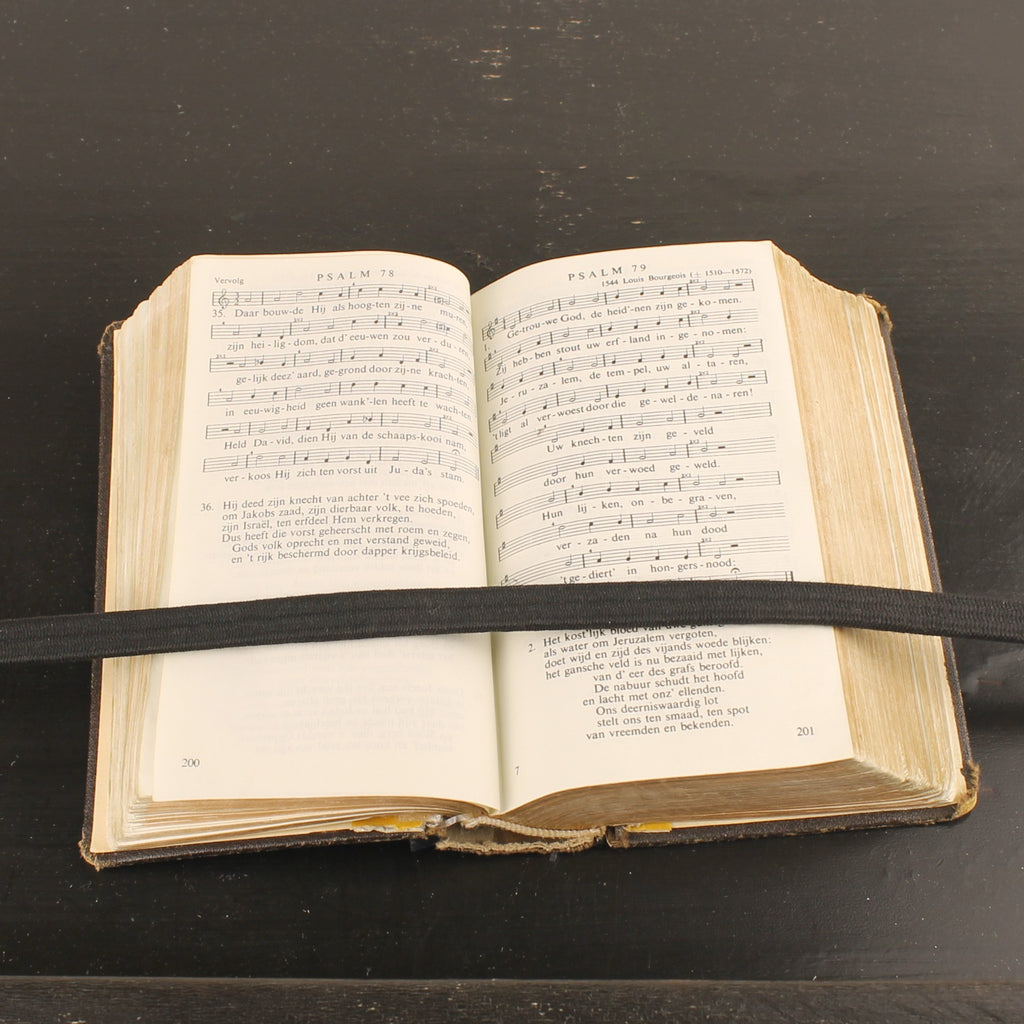 Vervolg
PSALM 78
35. Daar bouw-de Hij als hoog-ten zij-ne mu-ren,
zijn hei-lig-dom, dat d' eeu-wen zou ver-du-ren,
ge-lijk deez' aard, ge-grond door zij-ne krach-ten,
in eeu-wig-heid geen wank'-len heeft te wach-ten.
Held Da-vid, dien Hij van de schaaps-kooi nam,
ver-koos Hij zich ten vorst uit Ju-da's stam.
36. Hij deed zijn knecht van achter 't vee zich spoeden,
om Jakobs zaad, zijn dierbaar volk, te hoeden,
zijn Israël, ten erfdeel Hem verkregen.
Dus heeft die vorst geheerscht met roem en zegen,
Gods volk oprecht en met verstand geweid,
en 't rijk beschermd door dapper krijgsbeleid.
200
PSALM 79
1544 Louis Bourgeois (± 1510—1572)
1. Ge-trou-we God, de heid'-nen zijn ge-ko-men.
Zij heb-ben stout uw erf-land in-ge-no-men:
Je-ru-za-lem, de tem-pel, uw al-ta-ren,
't ligt al ver-woest door die ge-wel-de-na-ren!
Uw knech-ten zijn ge-veld
door hun ver-woed ge-weld.
Hun lij-ken, on-be-gra-ven,
ver-za-den na hun dood
't ge-diert' in hon-gers-nood:
2. Het kost'lijk bloed van
als water om Jeruzalem vergoten,
doet wijd en zijd des vijands woede blijken:
het gansche veld is nu bezaaid met lijken,
van d' eer des grafs beroofd.
De nabuur schudt het hoofd
en lacht met onz' ellenden.
Ons deerniswaardig lot
stelt ons ten smaad, ten spot
van vreemden en bekenden.
7
201